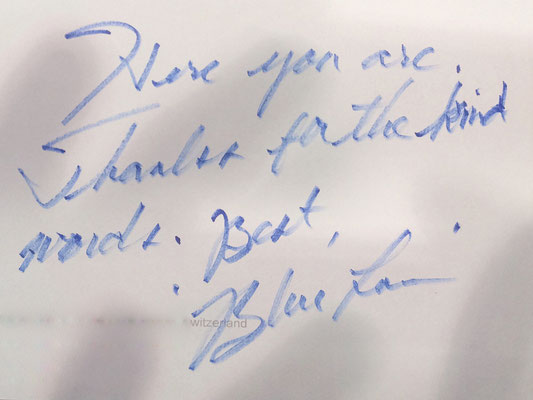 Here you are.
Thanks for the kind
words. Best,
"Blue Lou"
witzerland